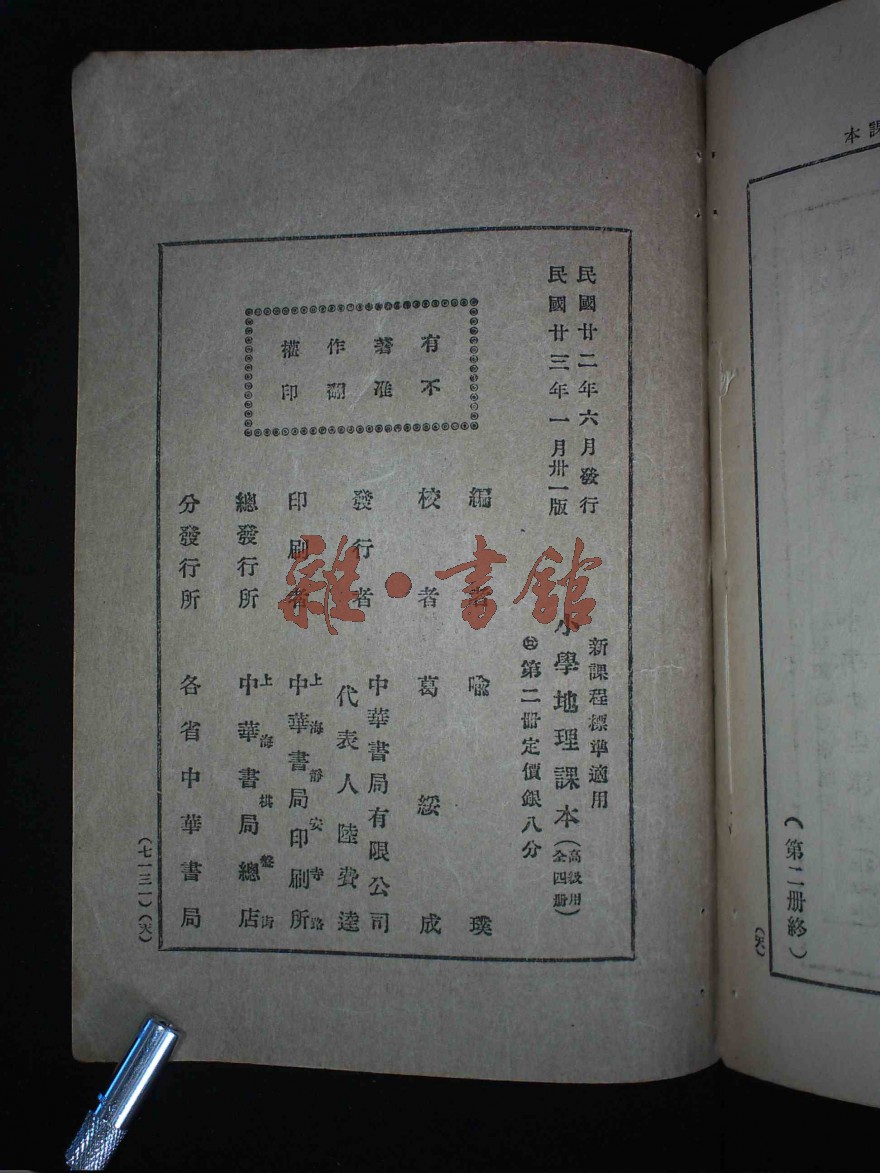 民國廿二年六月發行
民國廿三年一月卅一版
有著作權
不准翻印
新課程標準適用
小學地理課本(高級用全四册)
第二冊定價銀八分
編者 喩璞
校者 葛綏成
發行者 中華書局有限公司
代表人陸費逵
印刷者 上海靜安寺路
中華書局印刷所
總發行所 上海棋盤街
中華書局總店
分發行所 各省中華書局
(七一三一)(天)
雜·書館
課本
(第二册終)
(天)